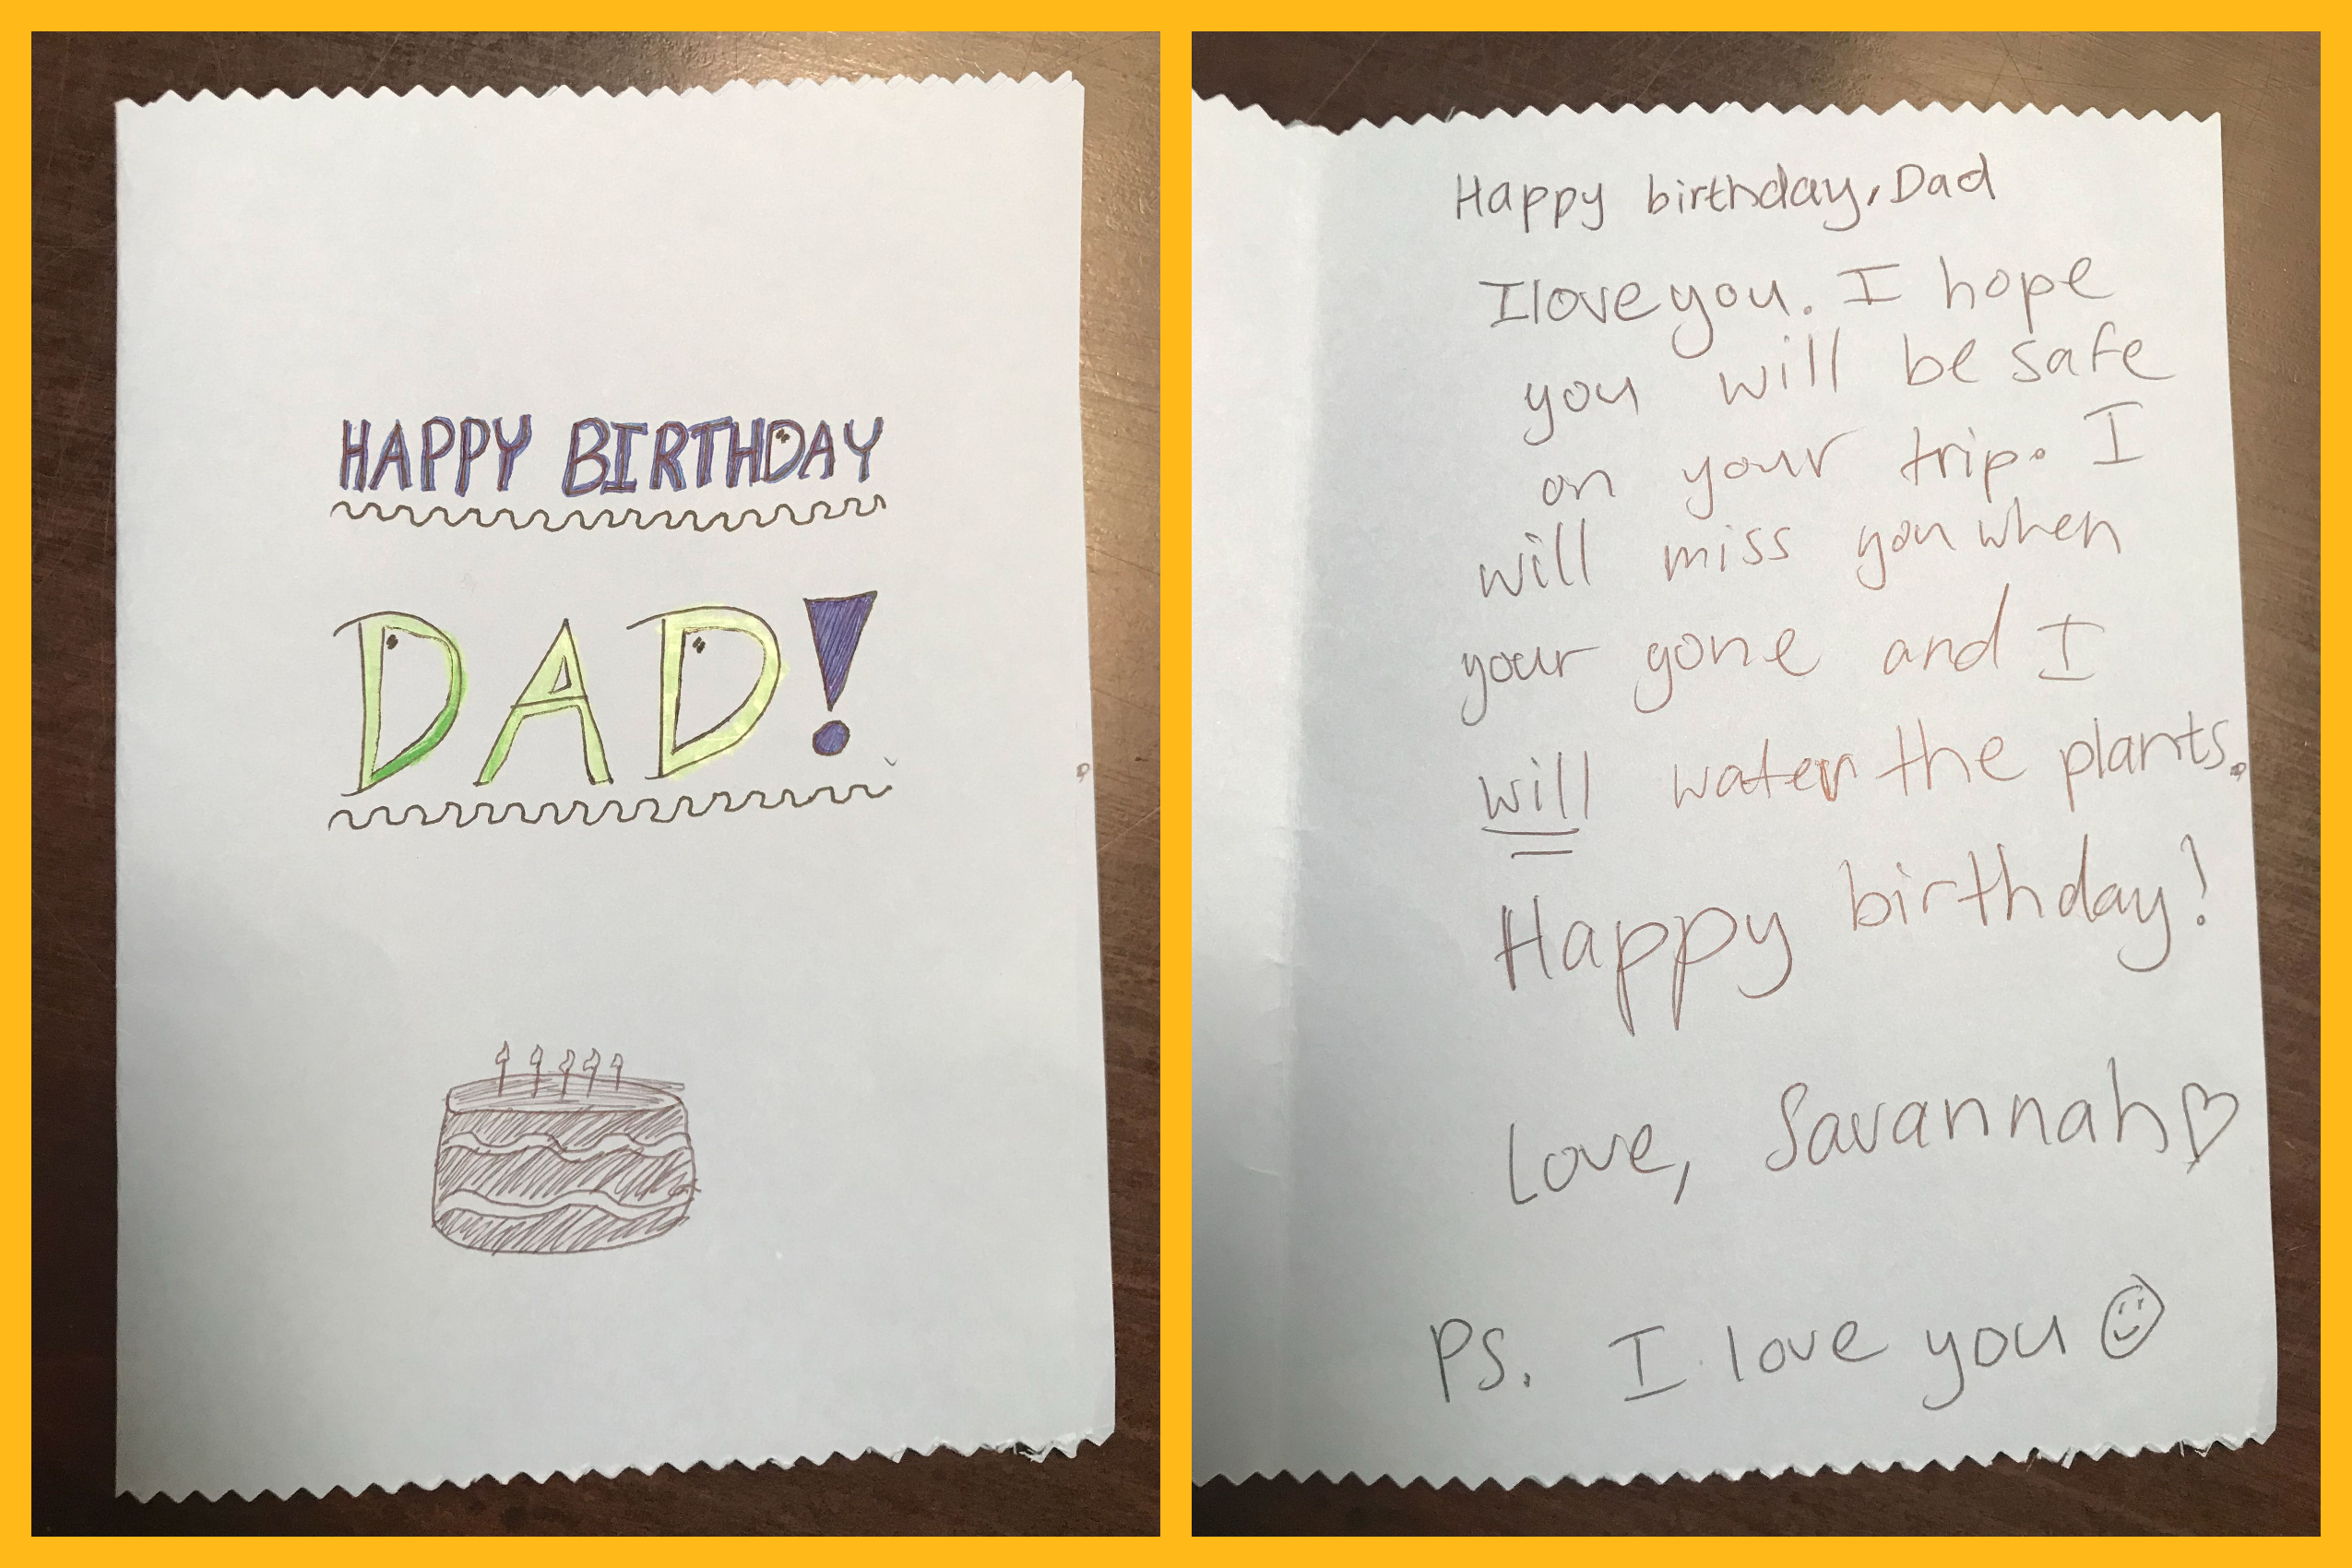 HAPPY BIRTHDAY
DAD!
Happy birthday, Dad
I love you. I hope
you will be safe
on your trip. I
will miss you when
your gone and I
will water the plants.
Happy birthday!
Love, Savannah♡
PS. I love you ☺